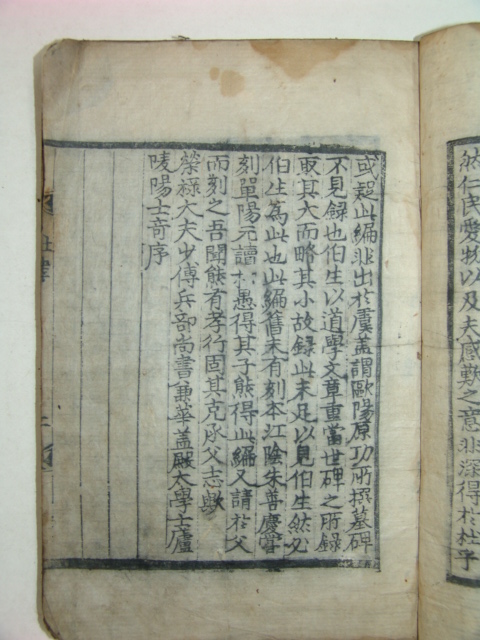 然仁民愛物以及夫感歎之意非深得於杜乎
或超此編非出於虞盖謂歐陽原功所撰墓碑
不見録也伯生以道學文章重當世碑之所録
取其大而略其小故録此未足以見伯生然必
伯生為此也此編舊未有刻本江陰朱善慶嘗
刻單陽元讀杜愚得其子熊得此編又請於父
而刻之吾聞熊有孝行固其克承父志歟
榮禄大夫少傅兵部尚書兼華盖殿大學士廬
陵陽士奇序
杜律
二